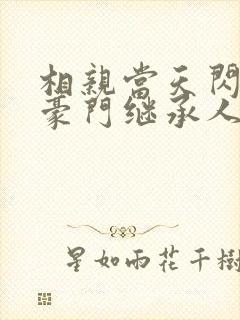 相親當天閃
豪門继承人
星如雨花千樹